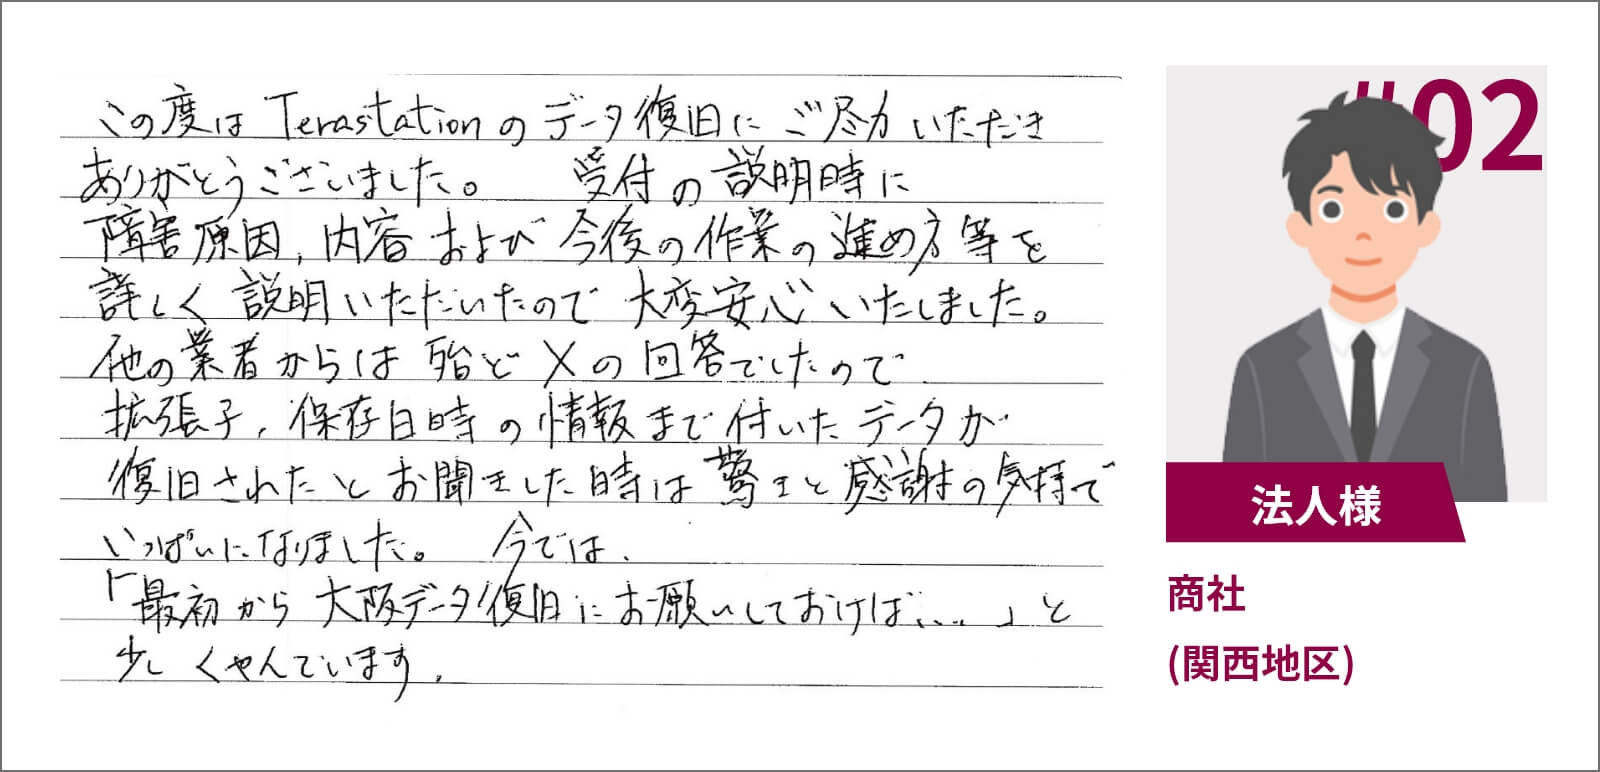 この度は Terastationの データ復旧に ご尽力 いただき
ありがとうございました。 受付の説明時に
障害原因、内容 および 今後の作業の進め方等を
詳しく 説明いただいたので 大変安心いたしました。
他の業者からは 殆ど ×の回答でしたので、
拡張子、保存日時の情報まで付いたデータが
復旧されたとお聞きした時は驚きと感謝の気持で
いっぱいになりました。 今では、
「最初から大阪データ復旧にお願いしておけば、、、」と
少しくやんでいます。
#02
法人様
商社
(関西地区)